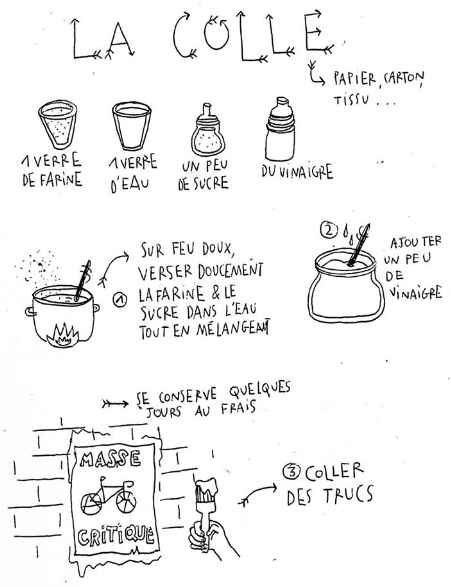 LA COLLE
PAPIER, CARTON,
TISSU ...
1 VERRE
DE FARINE
1 VERRE
D'EAU
UN PEU
DE SUCRE
DU VINAIGRE
1
SUR FEU DOUX,
VERSER DOUCEMENT
LA FARINE & LE
SUCRE DANS L'EAU
TOUT EN MÉLANGEANT
2
AJOUTER
UN PEU
DE
VINAIGRE
SE CONSERVE QUELQUES
JOURS AU FRAIS
MASSE
CRITIQUE
3 COLLER
DES TRUCS